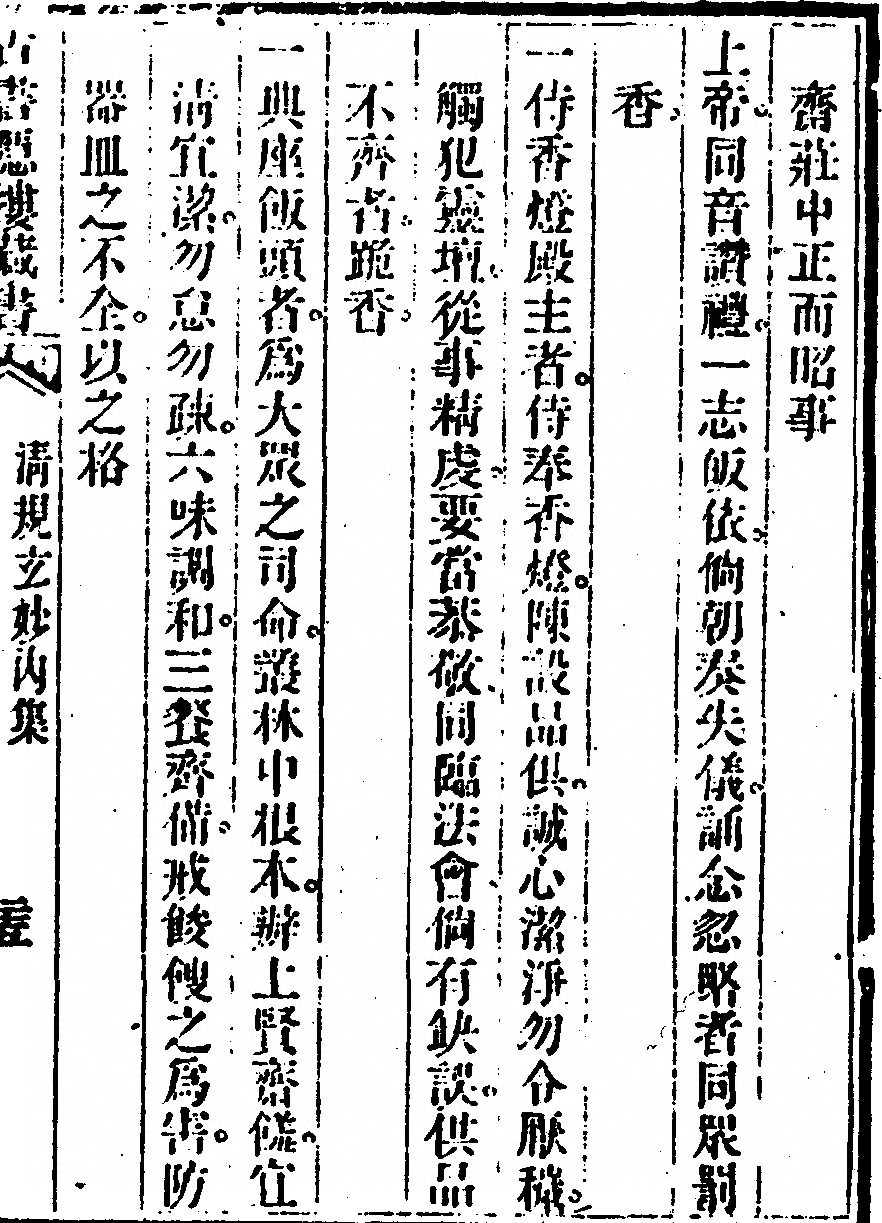 齋莊中正而昭事
上帝。同音讚禮。一志皈依。倘朝奏失儀。誦念忽略者同眾罰
香。
一侍香燈殿主者。侍奉香燈。陳設品供。誠心潔淨勿令厭穢。
觸犯靈壇。從事精虔。要當恭敬。同臨法會。倘有缺誤。供品
不齊者。跪香。
一典座飯頭者。為大眾之司命。叢林中根本。辦上賢齋饈。宜
清宜潔。勿怠勿疎。六味調和。三餐齊備。戒餕餿之為害。防
器皿之不全。以之格
清規玄妙內集